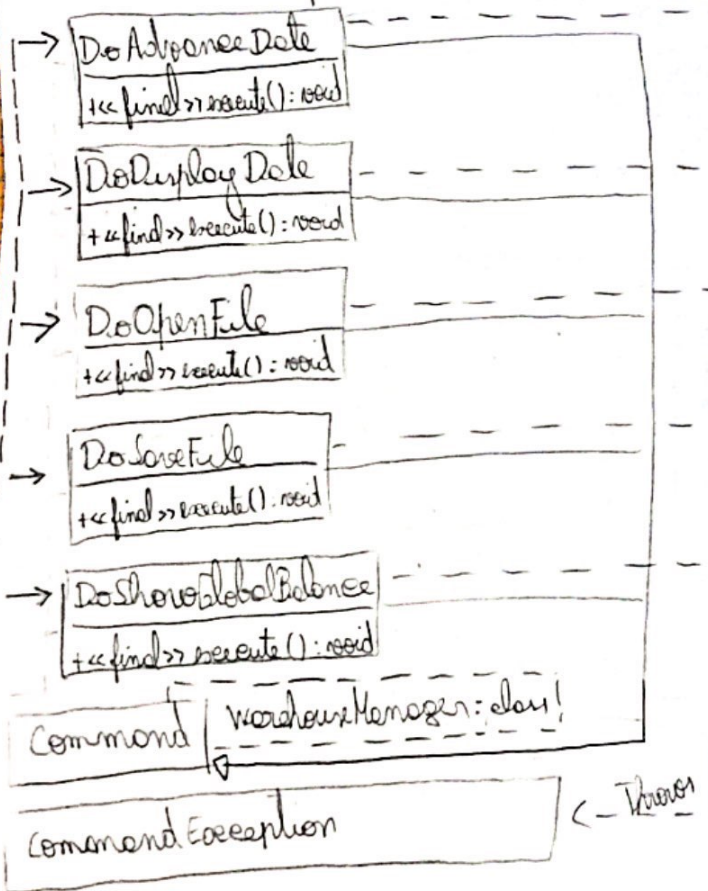 DoAdvanceDate
+<<final>> execute(): void
DoDisplayDate
+<<final>> execute(): void
DoOpenFile
+<<final>> execute(): void
DoSaveFile
+<<final>> execute(): void
DoShowGlobalBalance
+<<final>> execute(): void
Command WarehouseManager: class
CommandException
Throws